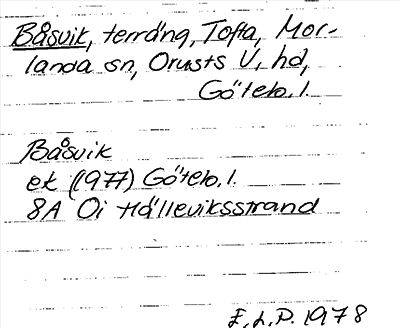 Båsvik, terräng, Tofta, Mor-
landa sn, Orusts V, hd,
Götebo. l.
Båsvik
ek (1977) Götebo. l.
8A Oi Hälleviksstrand
E. L. P. 1978